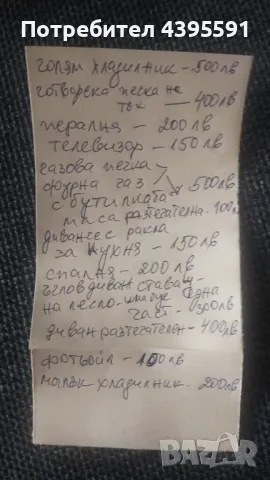 Потребител 4395591
голям хладилник - 500лв
готварска печка не
ток — 400лв
пералня - 200 лв
телевизор - 150лв
газова печка
фурна газ 500лв
с бутилката
маса разтегателна - 100лв
диванче с ракла
за кухня - 150лв
спалня - 200 лв
ъглов диван ставащ
на легло - една
част - 300лв
диван разтегателен - 400лв
фотьойл - 100лв
малък хладилник. 200лв
BAZAR